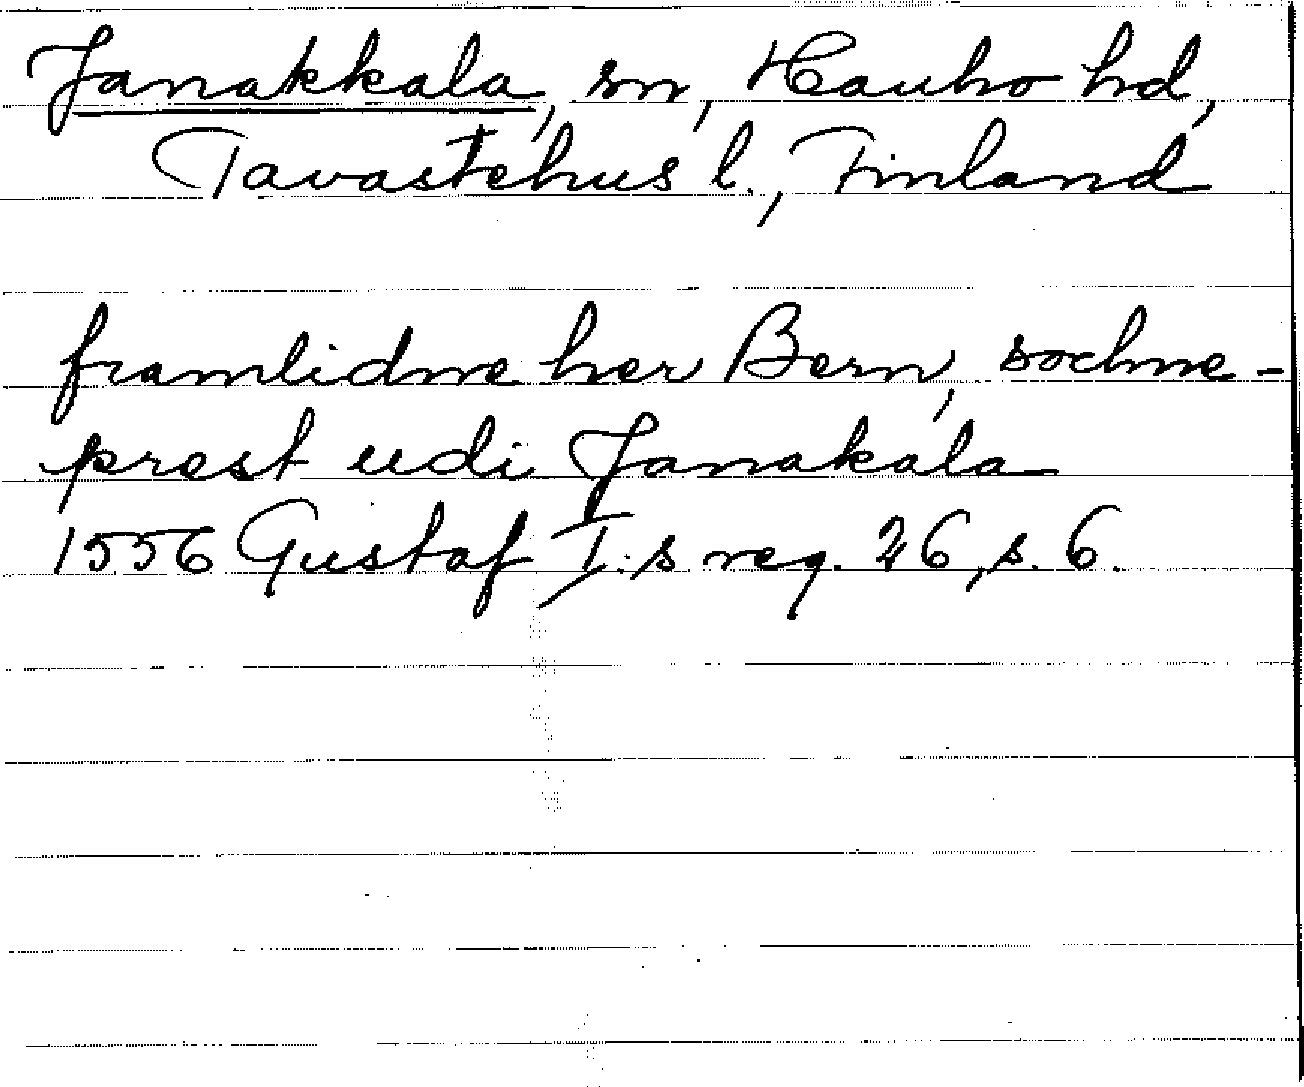 Janakkala, sn, Hauho hd,
Tavastehus l., Finland
framlidne her Bern, sochne-
prest udi Janakala
1556 Gustaf I:s reg. 26, s. 6.